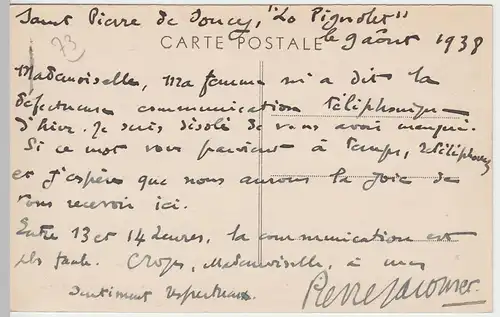 Saint Pierre de Soucy, "Le Pignolet"
73
le 9 août 1938
CARTE POSTALE
Mademoiselle, ma femme m'a dit la
défectueuse communication téléphonique
d'hier. Je suis désolé de vous avoir manqué.
Si ce mot vous parvient à temps, retéléphonez
et j'espère que nous aurons la joie de
vous recevoir ici.
Entre 13 et 14 heures, la communication est
plus facile. Croyez, Mademoiselle, à mes
sentiments respectueux.
Pierre